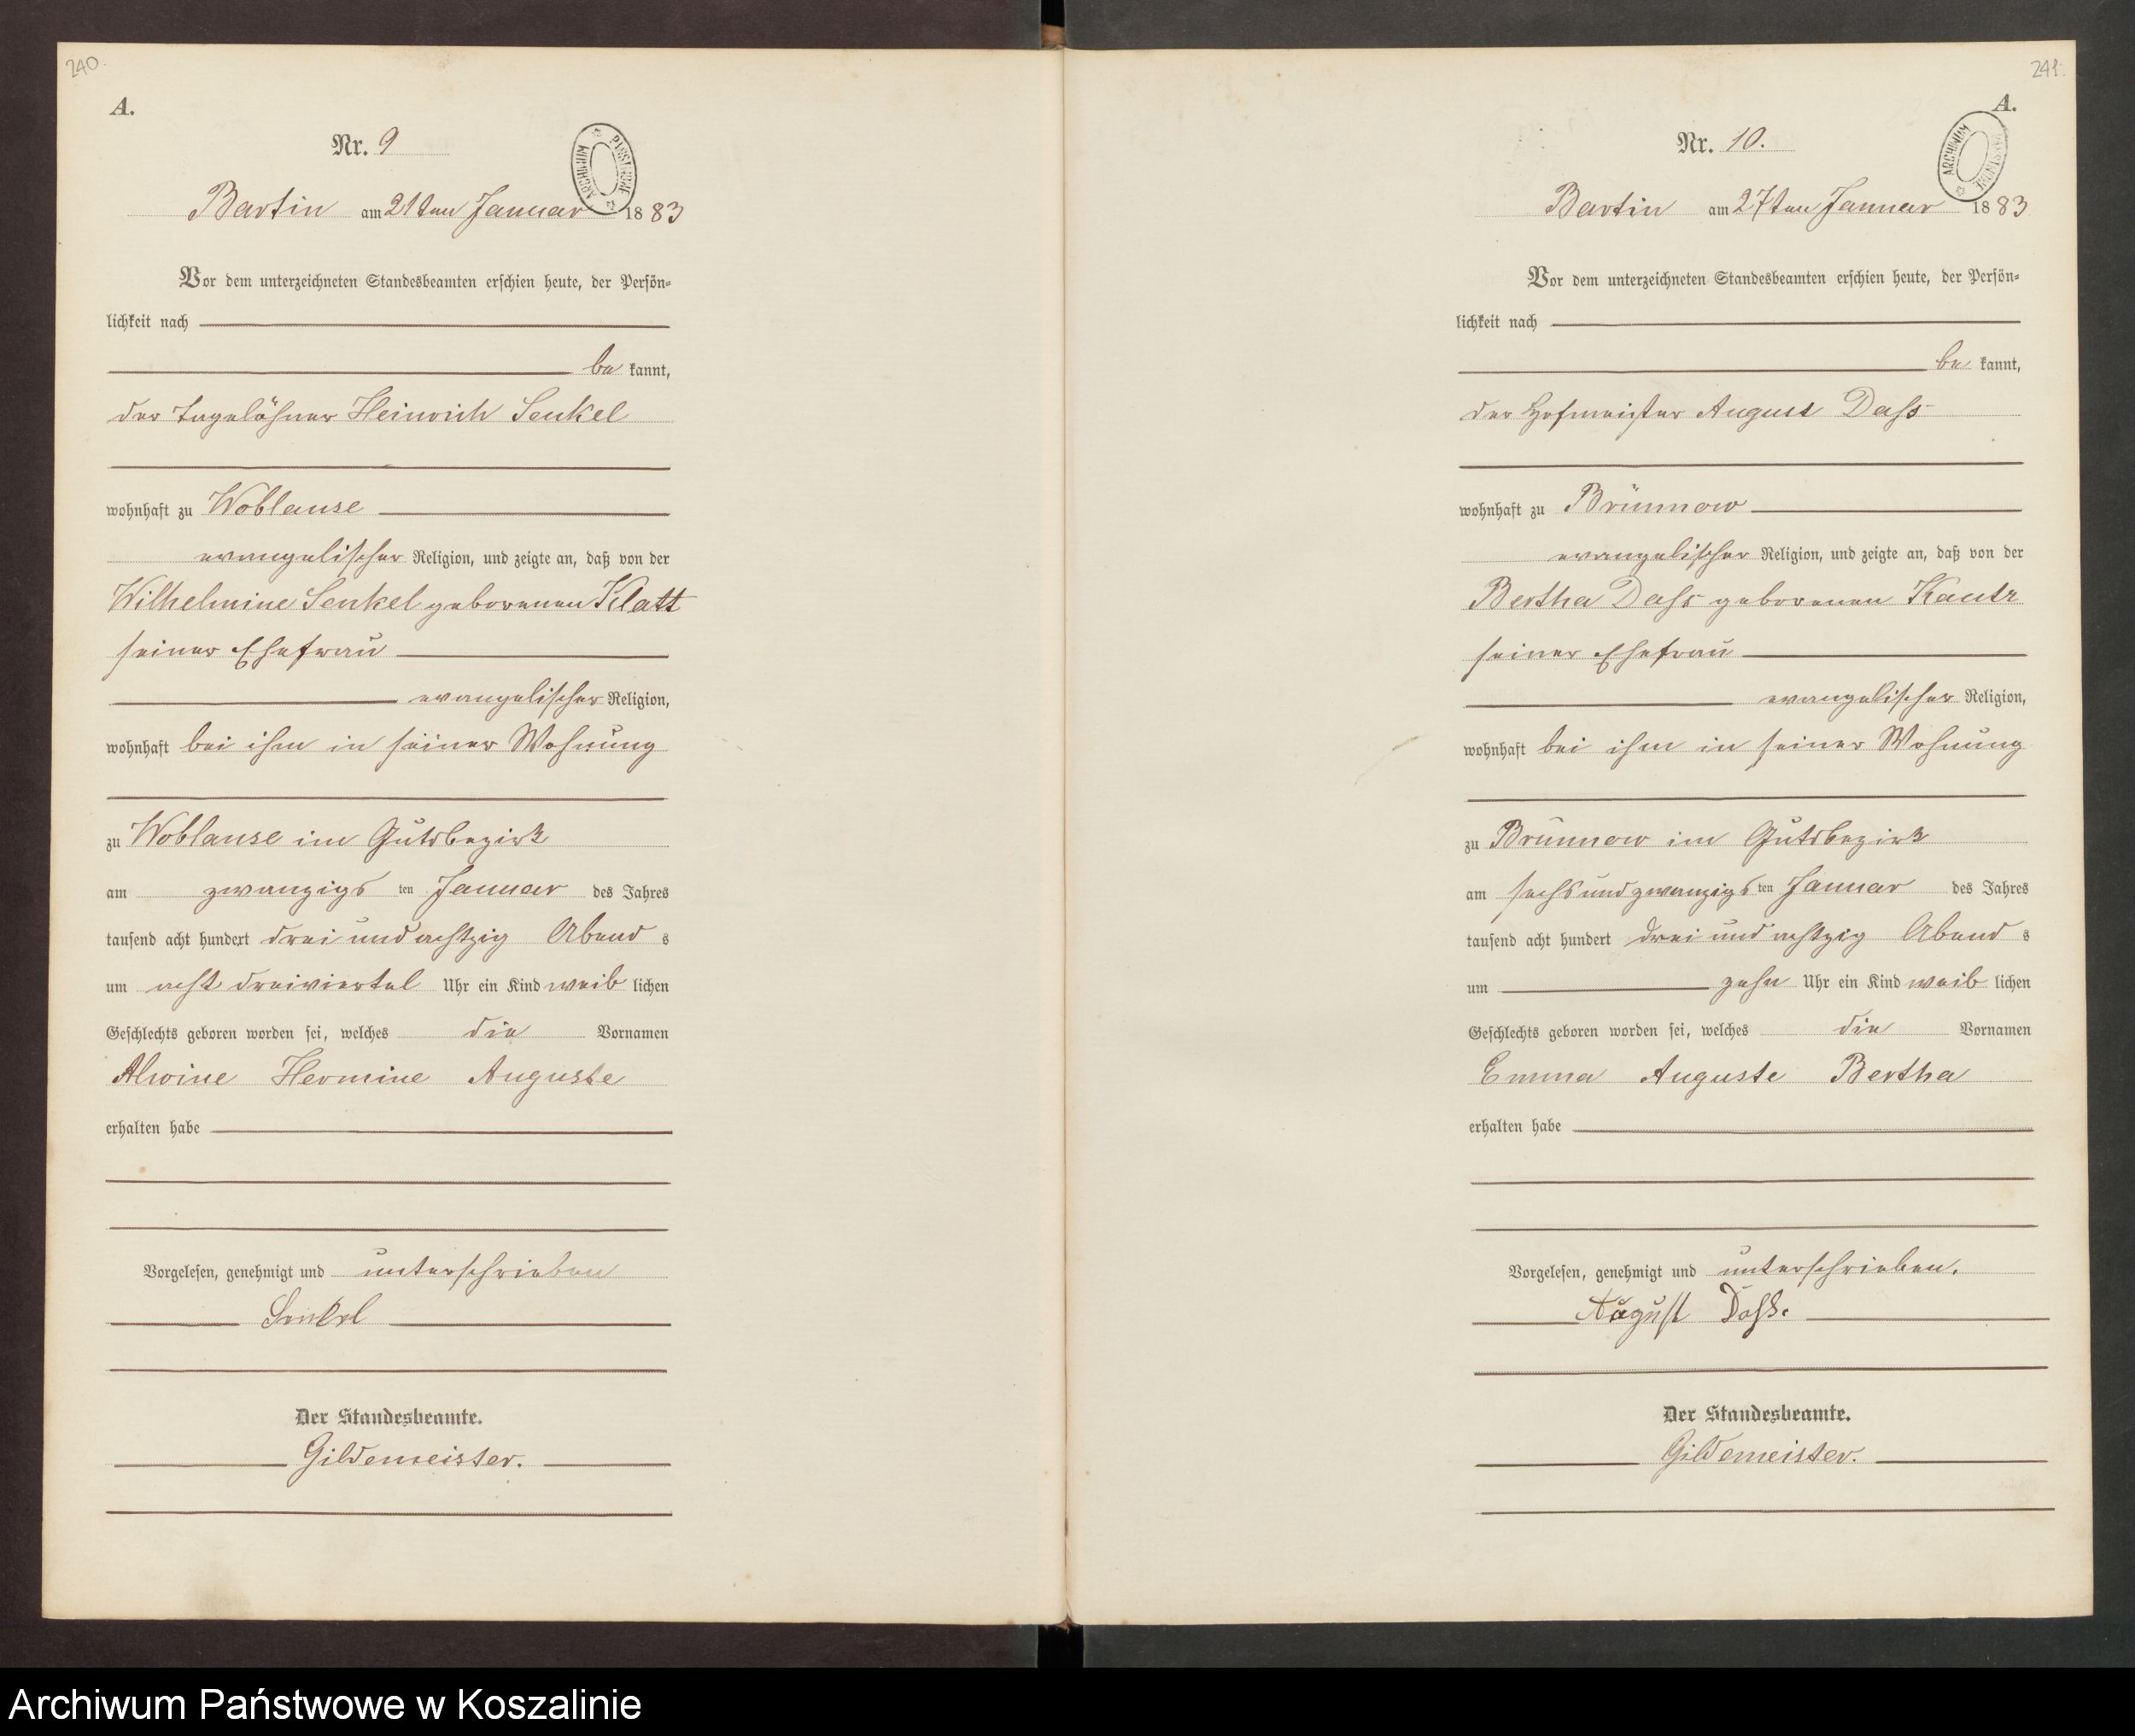 240.
A.
Nr. 9
ARCHIWUM PAŃSTWOWE
Bartin am 21ten Januar 1883
Vor dem unterzeichneten Standesbeamten erschien heute, der Persön-
lichkeit nach
be kannt,
der Tagelöhner Heinrich Senkel
wohnhaft zu Woblanse
evangelischer Religion, und zeigte an, daß von der
Wilhelmine Senkel geborenen Klatt
seiner Ehefrau
evangelischer Religion,
wohnhaft bei ihm in seiner Wohnung
zu Woblanse im Gutsbezirk
am zwanzigs ten Januar des Jahres
tausend acht hundert drei und achtzig Abend s
um acht dreiviertel Uhr ein Kind weib lichen
Geschlechts geboren worden sei, welches die Vornamen
Alwine Hermine Auguste
erhalten habe
Vorgelesen, genehmigt und unterschrieben
Senkel
Der Standesbeamte.
Gildemeister.
241.
A.
Nr. 10.
ARCHIWUM PAŃSTWOWE
Bartin am 27ten Januar 1883
Vor dem unterzeichneten Standesbeamten erschien heute, der Persön-
lichkeit nach
be kannt,
der Hofmeister August Dass
wohnhaft zu Brünnow
evangelischer Religion, und zeigte an, daß von der
Bertha Dass geborenen Kautz
seiner Ehefrau
evangelischer Religion,
wohnhaft bei ihm in seiner Wohnung
zu Brünnow im Gutsbezirk
am sechsundzwanzigs ten Januar des Jahres
tausend acht hundert drei und achtzig Abend s
um zehn Uhr ein Kind weib lichen
Geschlechts geboren worden sei, welches die Vornamen
Emma Auguste Bertha
erhalten habe
Vorgelesen, genehmigt und unterschrieben.
August Dass.
Der Standesbeamte.
Gildemeister.
Archiwum Państwowe w Koszalinie